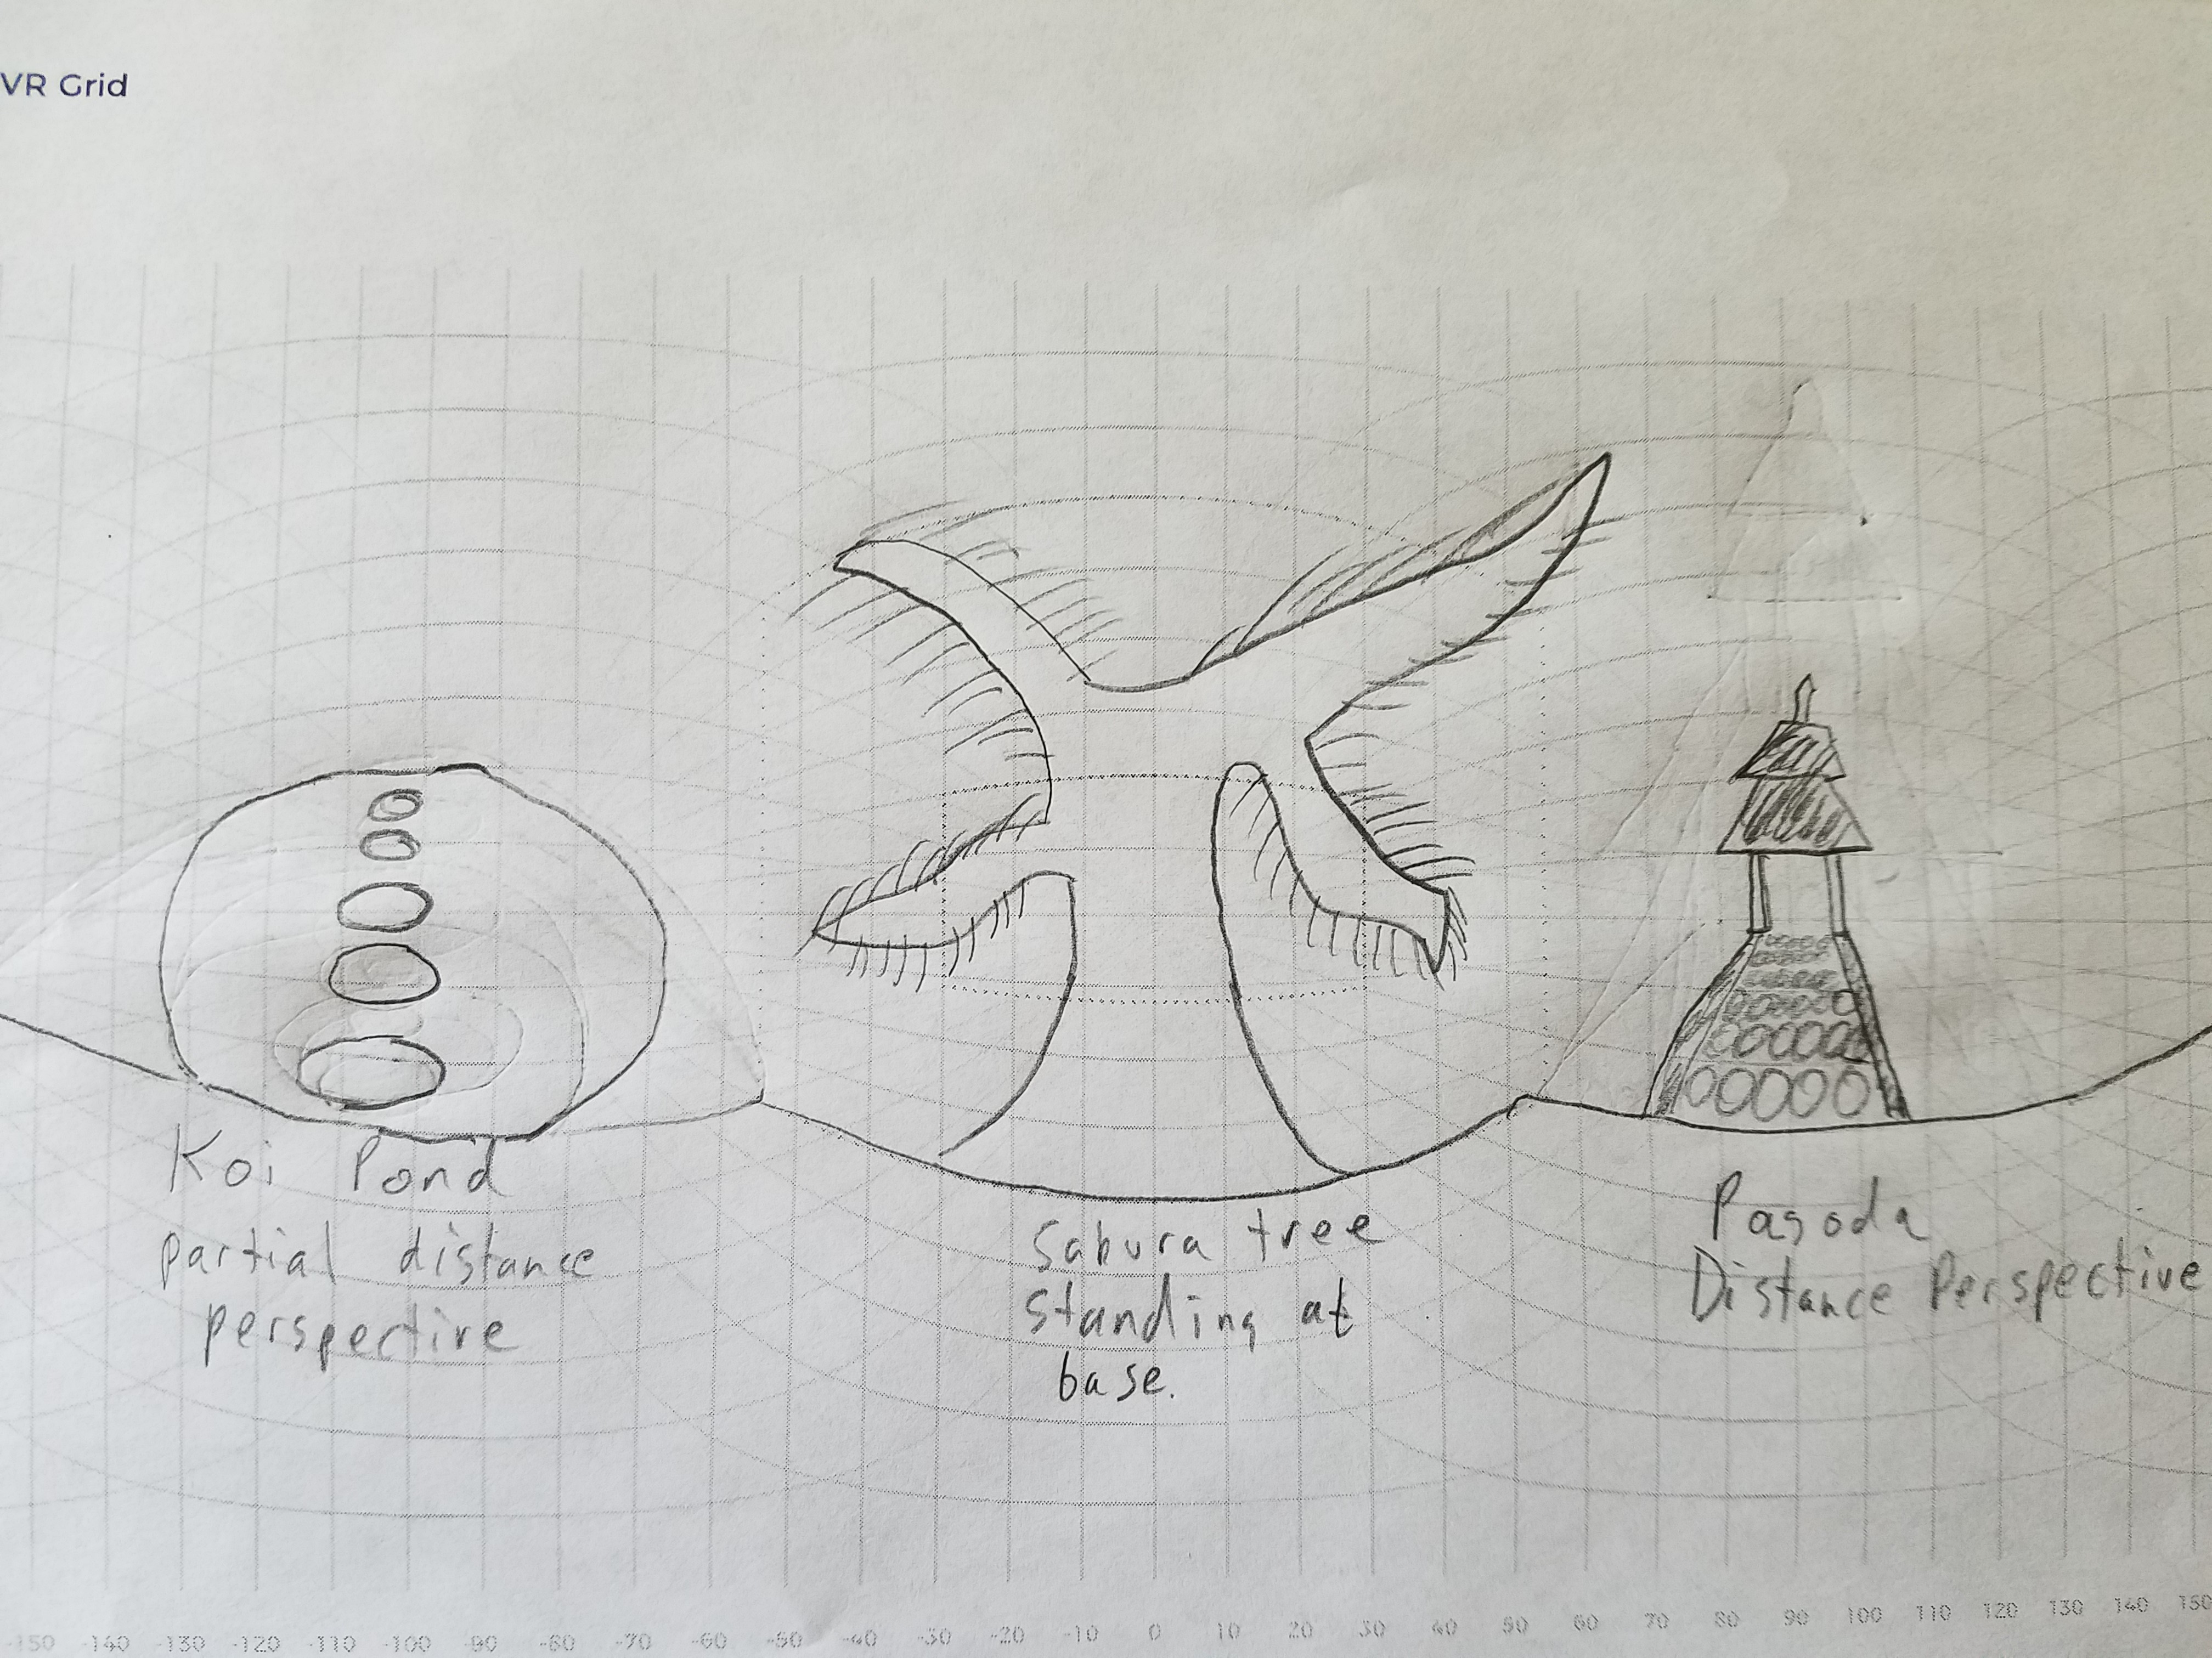 VR Grid
Koi Pond
partial distance
perspective
Sakura tree
standing at
base.
Pagoda
Distance Perspective
-150 -140 -130 -120 -110 -100 -90 -80 -70 -60 -50 -40 -30 -20 -10 0 10 20 30 40 50 60 70 80 90 100 110 120 130 140 150